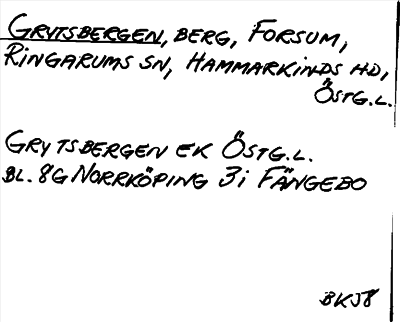 GRYTSBERGEN, BERG, FORSUM,
RINGARUMS SN, HAMMARKINDS HD,
ÖSTG.L.
GRYTSBERGEN EK ÖSTG.L.
BL. 8G NORRKÖPING 3i FÄNGEBO
BKJ8